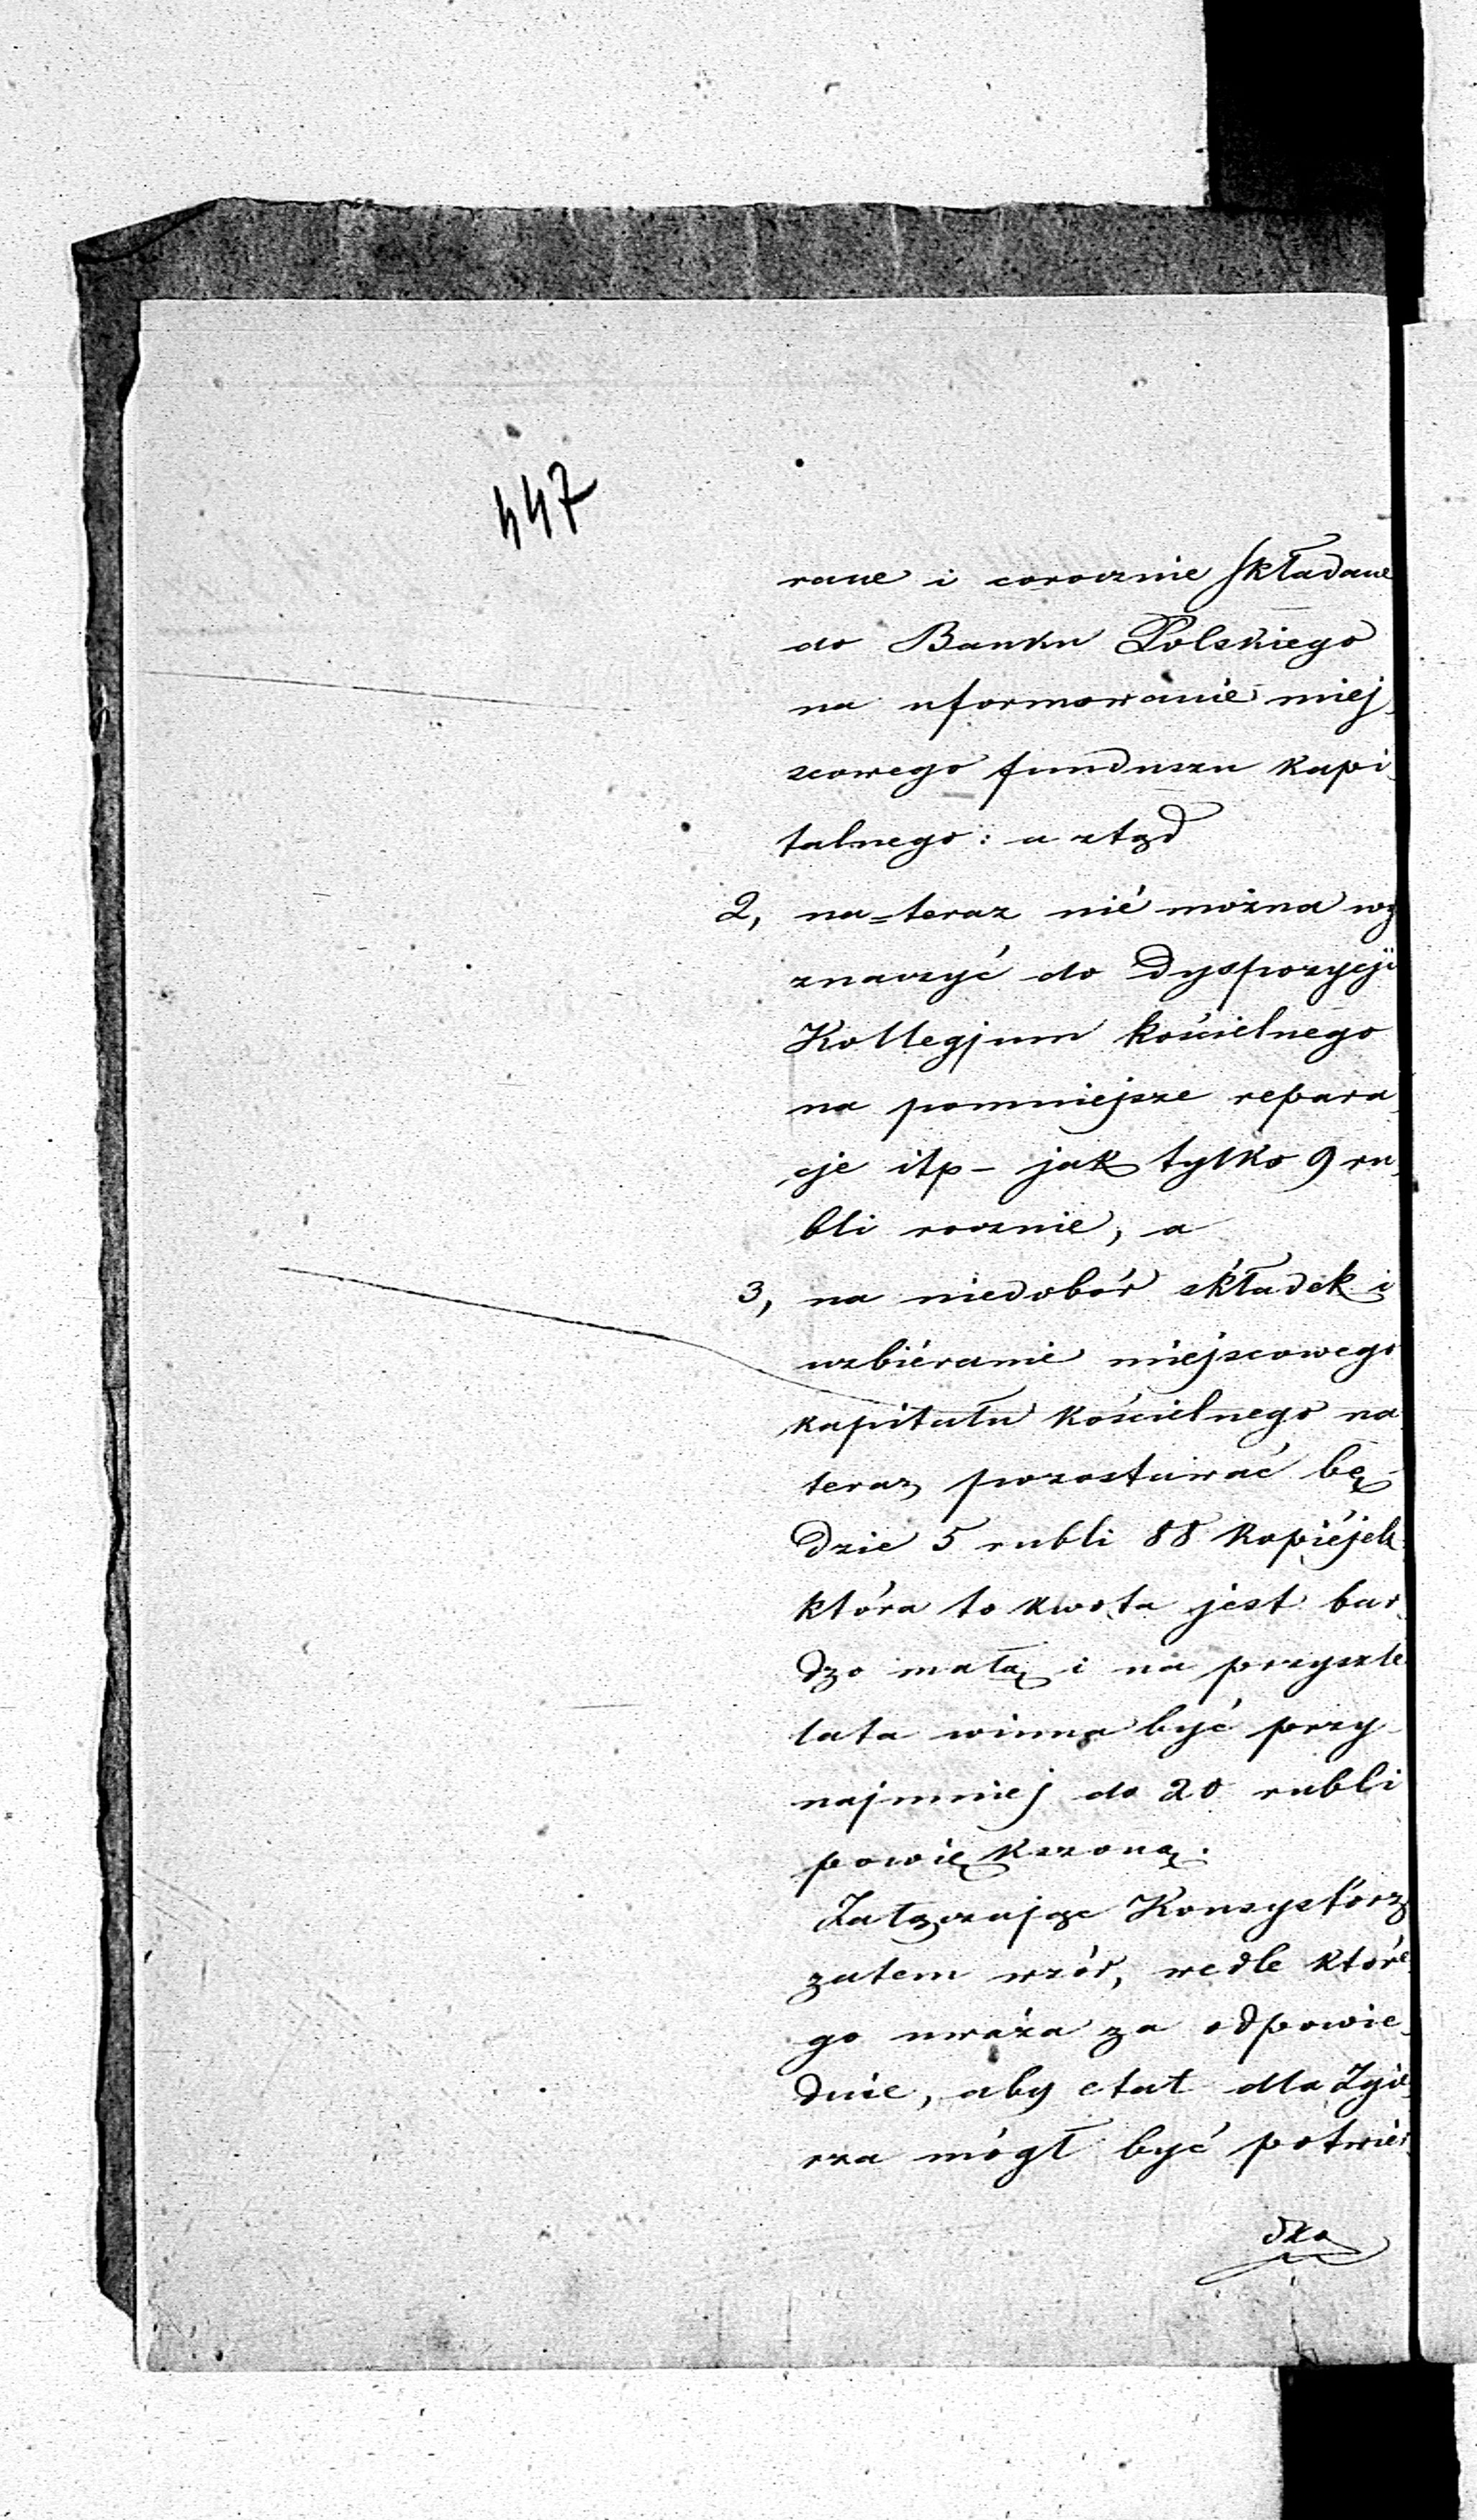 447
rane i corocznie składane
do Banku Polskiego
na uformowanie miej-
scowego funduszu kapi-
talnego: a ztąd
2, na=teraz nié można wy
znaczyć do Dyspozycji
Kollegjum kościelnego
na pomniejsze repara-
cje itp – jak tylko 9 ru-
bli rocznie, a
3, na niedobór składek i
uzbiéranie miejscowego
kapitału kościelnego na
teraz pozostawać bę-
dzie 5 rubli 88 kopiéjek
która to kwota jest bar-
dzo małą i na przyszłe
lata winna być przy-
najmniej do 20 rubli
powiększoną.
Załączając Konsystórz
zatem wzór, wedle które-
go uważa za odpowie-
dnie, aby etat dla Zgié-
rza mógł być potwiér-
dzo